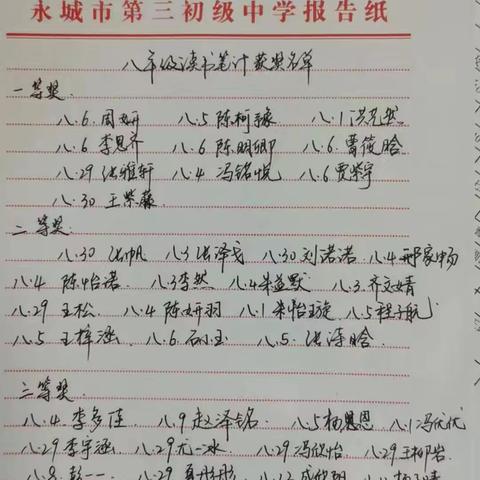 永城市第三初级中学报告纸
八年级读书笔计获奖名单
一等奖.
八.6.周妍 八.5陈柯豫 八.1洪
八.6李思齐 八.6陈明卿 八.6曹筱晗
八.29张雅轩 八.4冯铭悦 八.6贾紫宇
八.30王紫藤
二等奖.
八.30张帆 八3张泽戈 八.30刘诺诺 八.4邢家畅
八.4陈怡诺 八.3李然 八.4朱益默 八.3.齐文婧
八.29王松 八.4陈妍羽 八.1朱怡璇 八5程子航
八.5王梓涵 八.6.石玉 八.5.张淳晗
三等奖
八.4.李多佳 八.9赵泽铭 八.5杨恩恩 八.1冯优优
八.29李宇涵 八.29尤一冰 八.29冯欣怡 八.29王柳岩
八.8彭一一 八.29 八.12